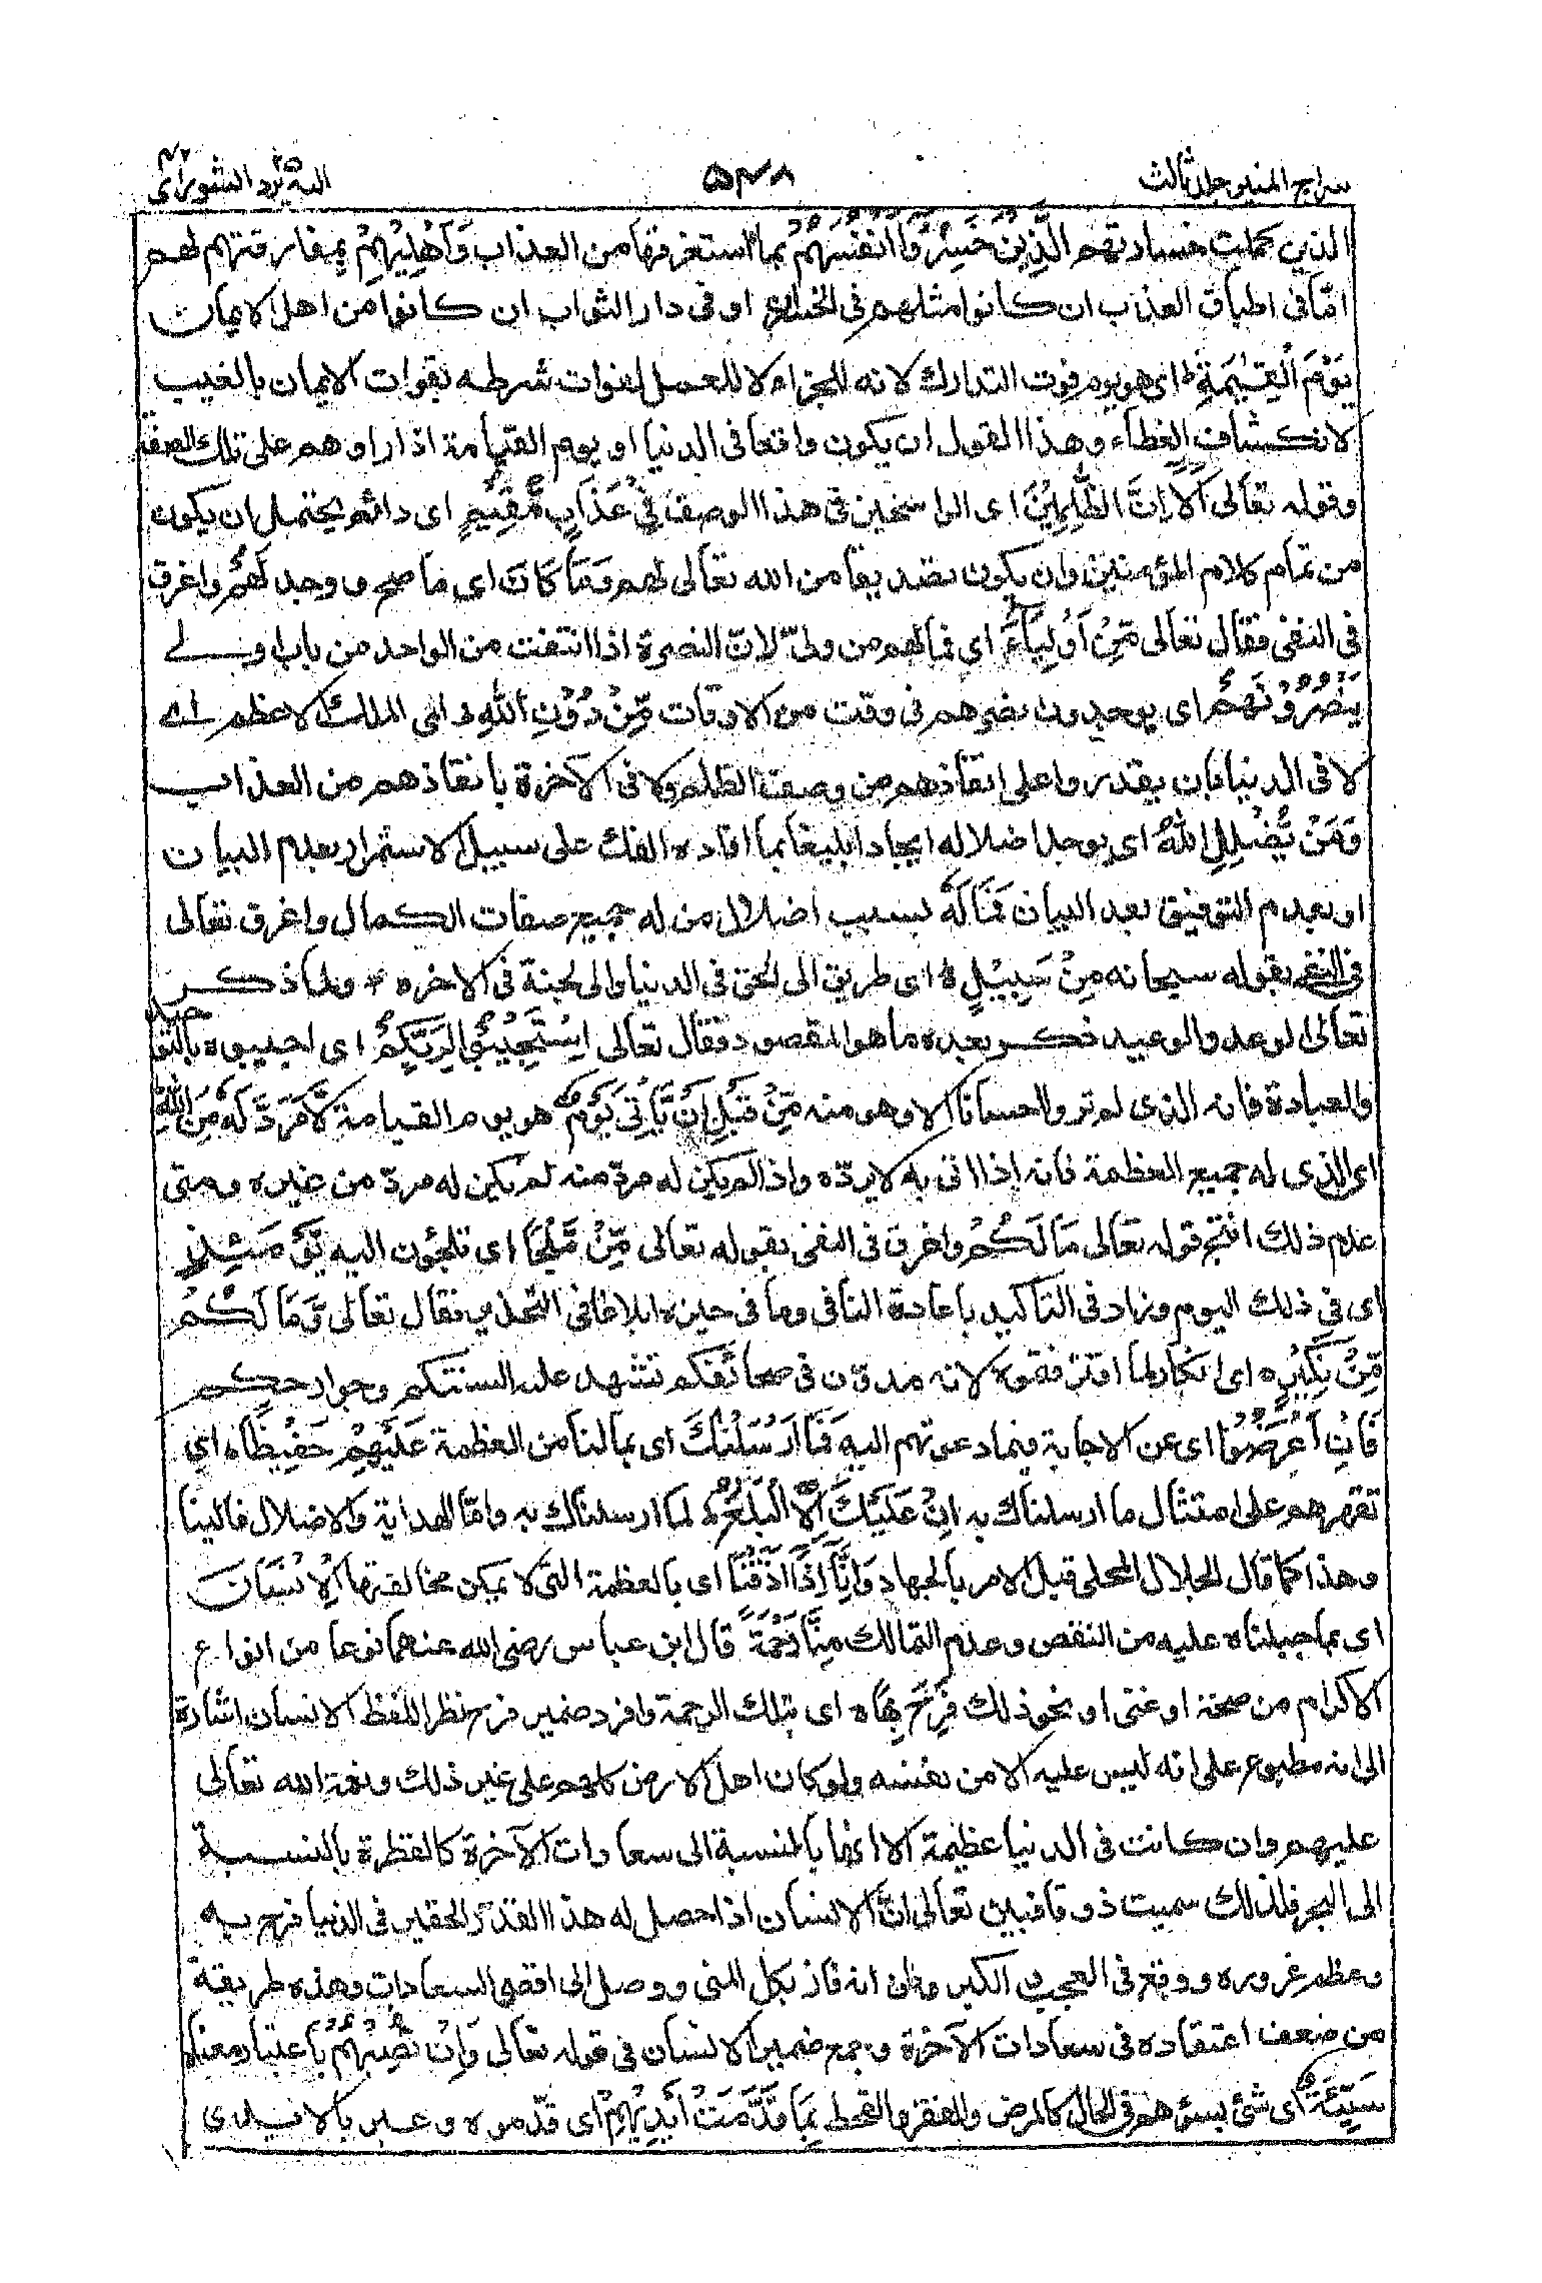 سراج المنير جلد ثالث
۵۴۸
اليه يرد ٢٥ الشورى ٤٢
الذين كملت خسارتهم الَّذِيْنَ خَسِرُوْٓا اَنْفُسَهُمْ بما استغرقها من العذاب وَاَهْلِيْهِمْ بمفارقتهم لهم
امّا فى اطباق العذاب ان كانوا مثلهم فى الخسارة او فى دار الثواب ان كانوا من اهل الايمان
يَوْمَ الْقِيٰمَةِ ط اى هو يوم فوت التدارك لانه للجزاء لا للعمل لفوات شرطه بفوات الايمان بالغيب
لانكشاف الغطاء وهذا القول ان يكون واقعا فى الدنيا او يوم القيامة اذا راوهم على تلك الصفة
وقوله تعالى اَلَآ اِنَّ الظّٰلِمِيْنَ اى الراسخين فى هذا الوصف فِيْ عَذَابٍ مُّقِيْمٍ اى دائم يحتمل ان يكون
من تمام كلام المؤمنين وان يكون تصديقا من الله تعالى لهم وَمَا كَانَ اى ما صح ووجد لَهُمْ واغرق
فى النفى فقال تعالى مِّنْ اَوْلِيَآءَ اى فما لهم من ولىّ لانّ النصرة اذا انتفت من الواحد من باب اولے
يَنْصُرُوْنَهُمْ اى يوجدون نصرهم فى وقت من الاوقات مِّنْ دُوْنِ اللّٰهِ اى الملك الاعظم اے
لا فى الدنيا بان يقدروا على انقاذهم من وصف الظلم ولا فى الآخرة بانقاذهم من العذاب
وَمَنْ يُّضْلِلِ اللّٰهُ اى يوجد اضلاله ايجادا بليغا بما افاده الفك على سبيل الاستمرار بعدم البيان
او بعدم التوفيق بعد البيان فَمَا لَهٗ بسبب اضلال من له جميع صفات الكمال واغرق تعالى
فى النفى بقوله سبحانه مِنْ سَبِيْلٍ ه اى طريق الى الحق فى الدنيا والى الجنة فى الاخره ولما ذكر
تعالى الوعد والوعيد ذكر بعده ما هو المقصود فقال تعالى اسْتَجِيْبُوْا لِرَبِّكُمْ اى اجيبوه بالتوحيد
والعبادة فانه الذى لم تروا احسانا الا وهو منه مِّنْ قَبْلِ اَنْ يَّاْتِيَ يَوْمٌ هو يوم القيامة لَّا مَرَدَّ لَهٗ مِنَ اللّٰهِ
اى الذى له جميع العظمة فانه اذا اتى به لا يردّه واذا لم يكن له مردّ منه لم يكن له مردّ من غيره ومتى
علم ذلك انتج قوله تعالى مَا لَكُمْ واغرق فى النفى بقوله تعالى مِّنْ مَّلْجَاٍ اى تلجئون اليه يَّوْمَئِذٍ
اى فى ذلك اليوم وزاد فى التاكيد باعادة النافى وما فى حيزه ابلاغا فى التحذير فقال تعالى وَّمَا لَكُمْ
مِّنْ نَّكِيْرٍ ه اى انكار لما اقترفتموه لانه مدوّن فى صحائفكم تشهد عليه السنتكم وجوارحكم
فَاِنْ اَعْرَضُوْا اى عن الاجابة فيما دعوتهم اليه فَمَآ اَرْسَلْنٰكَ اى بما لنا من العظمة عَلَيْهِمْ حَفِيْظًا ه اى
تقهرهم على امتثال ما ارسلناك به اِنْ عَلَيْكَ اِلَّا الْبَلٰغُ ط لما ارسلناك به وامّا الهداية والاضلال فالينا
وهذا كما قال الجلال المحلى قبل الامر بالجهاد وَاِنَّآ اِذَآ اَذَقْنَا اى بالعظمة التى لا يمكن مخالفتها الْاِنْسَانَ
اى بما جبلناه عليه من النقص وعدم التمالك مِنَّا رَحْمَةً قال ابن عباس رضى الله عنهما نوعا من انواع
الاكرام من صحة او غنى او نحو ذلك فَرِحَ بِهَا ه اى بتلك الرحمة وافرد ضمير فرح نظرا للفظ الانسان اشارة
الى انه مطبوع على انه ليس عليه الا من نفسه ولو كان اهل الارض كلهم على غير ذلك ونعمة الله تعالى
عليهم وان كانت فى الدنيا عظيمة الا انها بالنسبة الى سعادات الآخرة كالقطرة بالنسبة
الى البحر فلذلك سميت ذوقا فبين تعالى انّ الانسان اذا حصل له هذا القدر الحقير فى الدنيا فرح به
وعظم غروره ووقع فى العجب و الكبر وظن انه فاز بكل المنى ووصل الى اقصى السعادات وهذه طريقة
من ضعف اعتقاده فى سعادات الآخرة وجمع ضمير الانسان فى قوله تعالى وَاِنْ تُصِبْهُمْ باعتبار معناه
سَيِّئَةٌ اى شئ يسؤهم فى الحال كالمرض والفقر والقحط بِمَا قَدَّمَتْ اَيْدِيْهِمْ اى قدّموه وعبر بالايدى